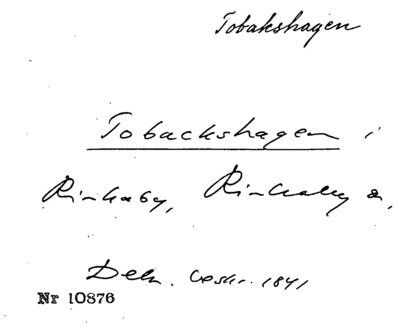 Tobakshagen
Tobackshagen i
Rinkaby, Rinkaby s,
Deln. beskr. 1841
Nr 10876